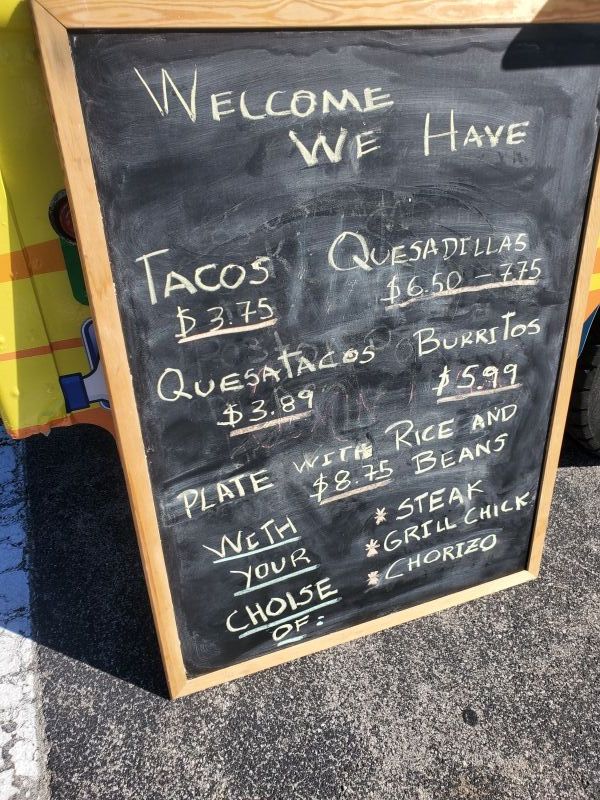 WELCOME
WE HAVE
TACOS
$3.75
QUESADILLAS
$6.50 - 7.75
QUESATACOS
$3.89
BURRITOS
$5.99
PLATE WITH RICE AND
$8.75 BEANS
WITH
YOUR
CHOISE
OF:
* STEAK
* GRILL CHICK
* CHORIZO